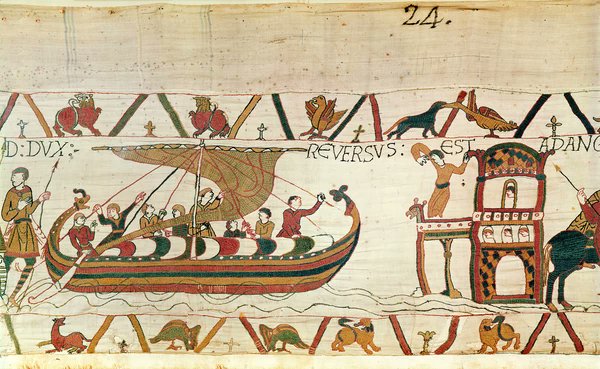 24.
D: DVX:, REVERSVS: EST ADANG